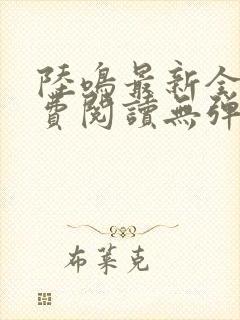 陸鳴最新全
費閱讀無彈
布萊克